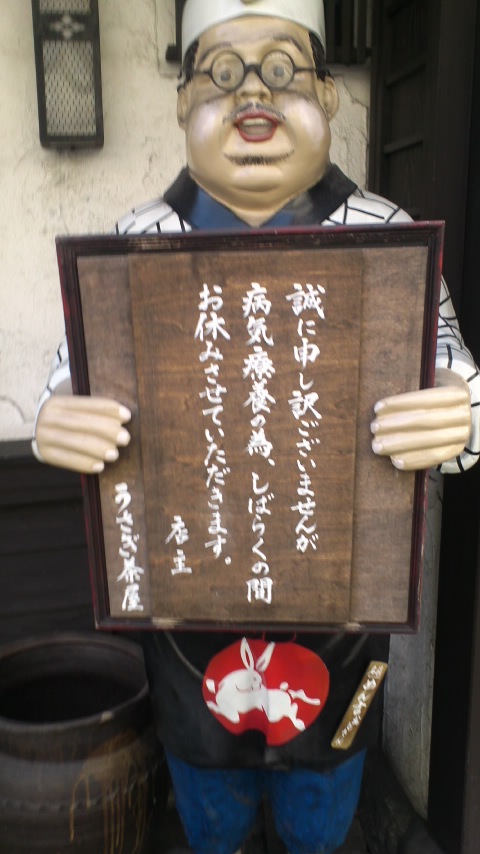 誠に申し訳ございませんが
病気療養の為、しばらくの間
お休みさせていただきます。
店主
うさぎ茶屋